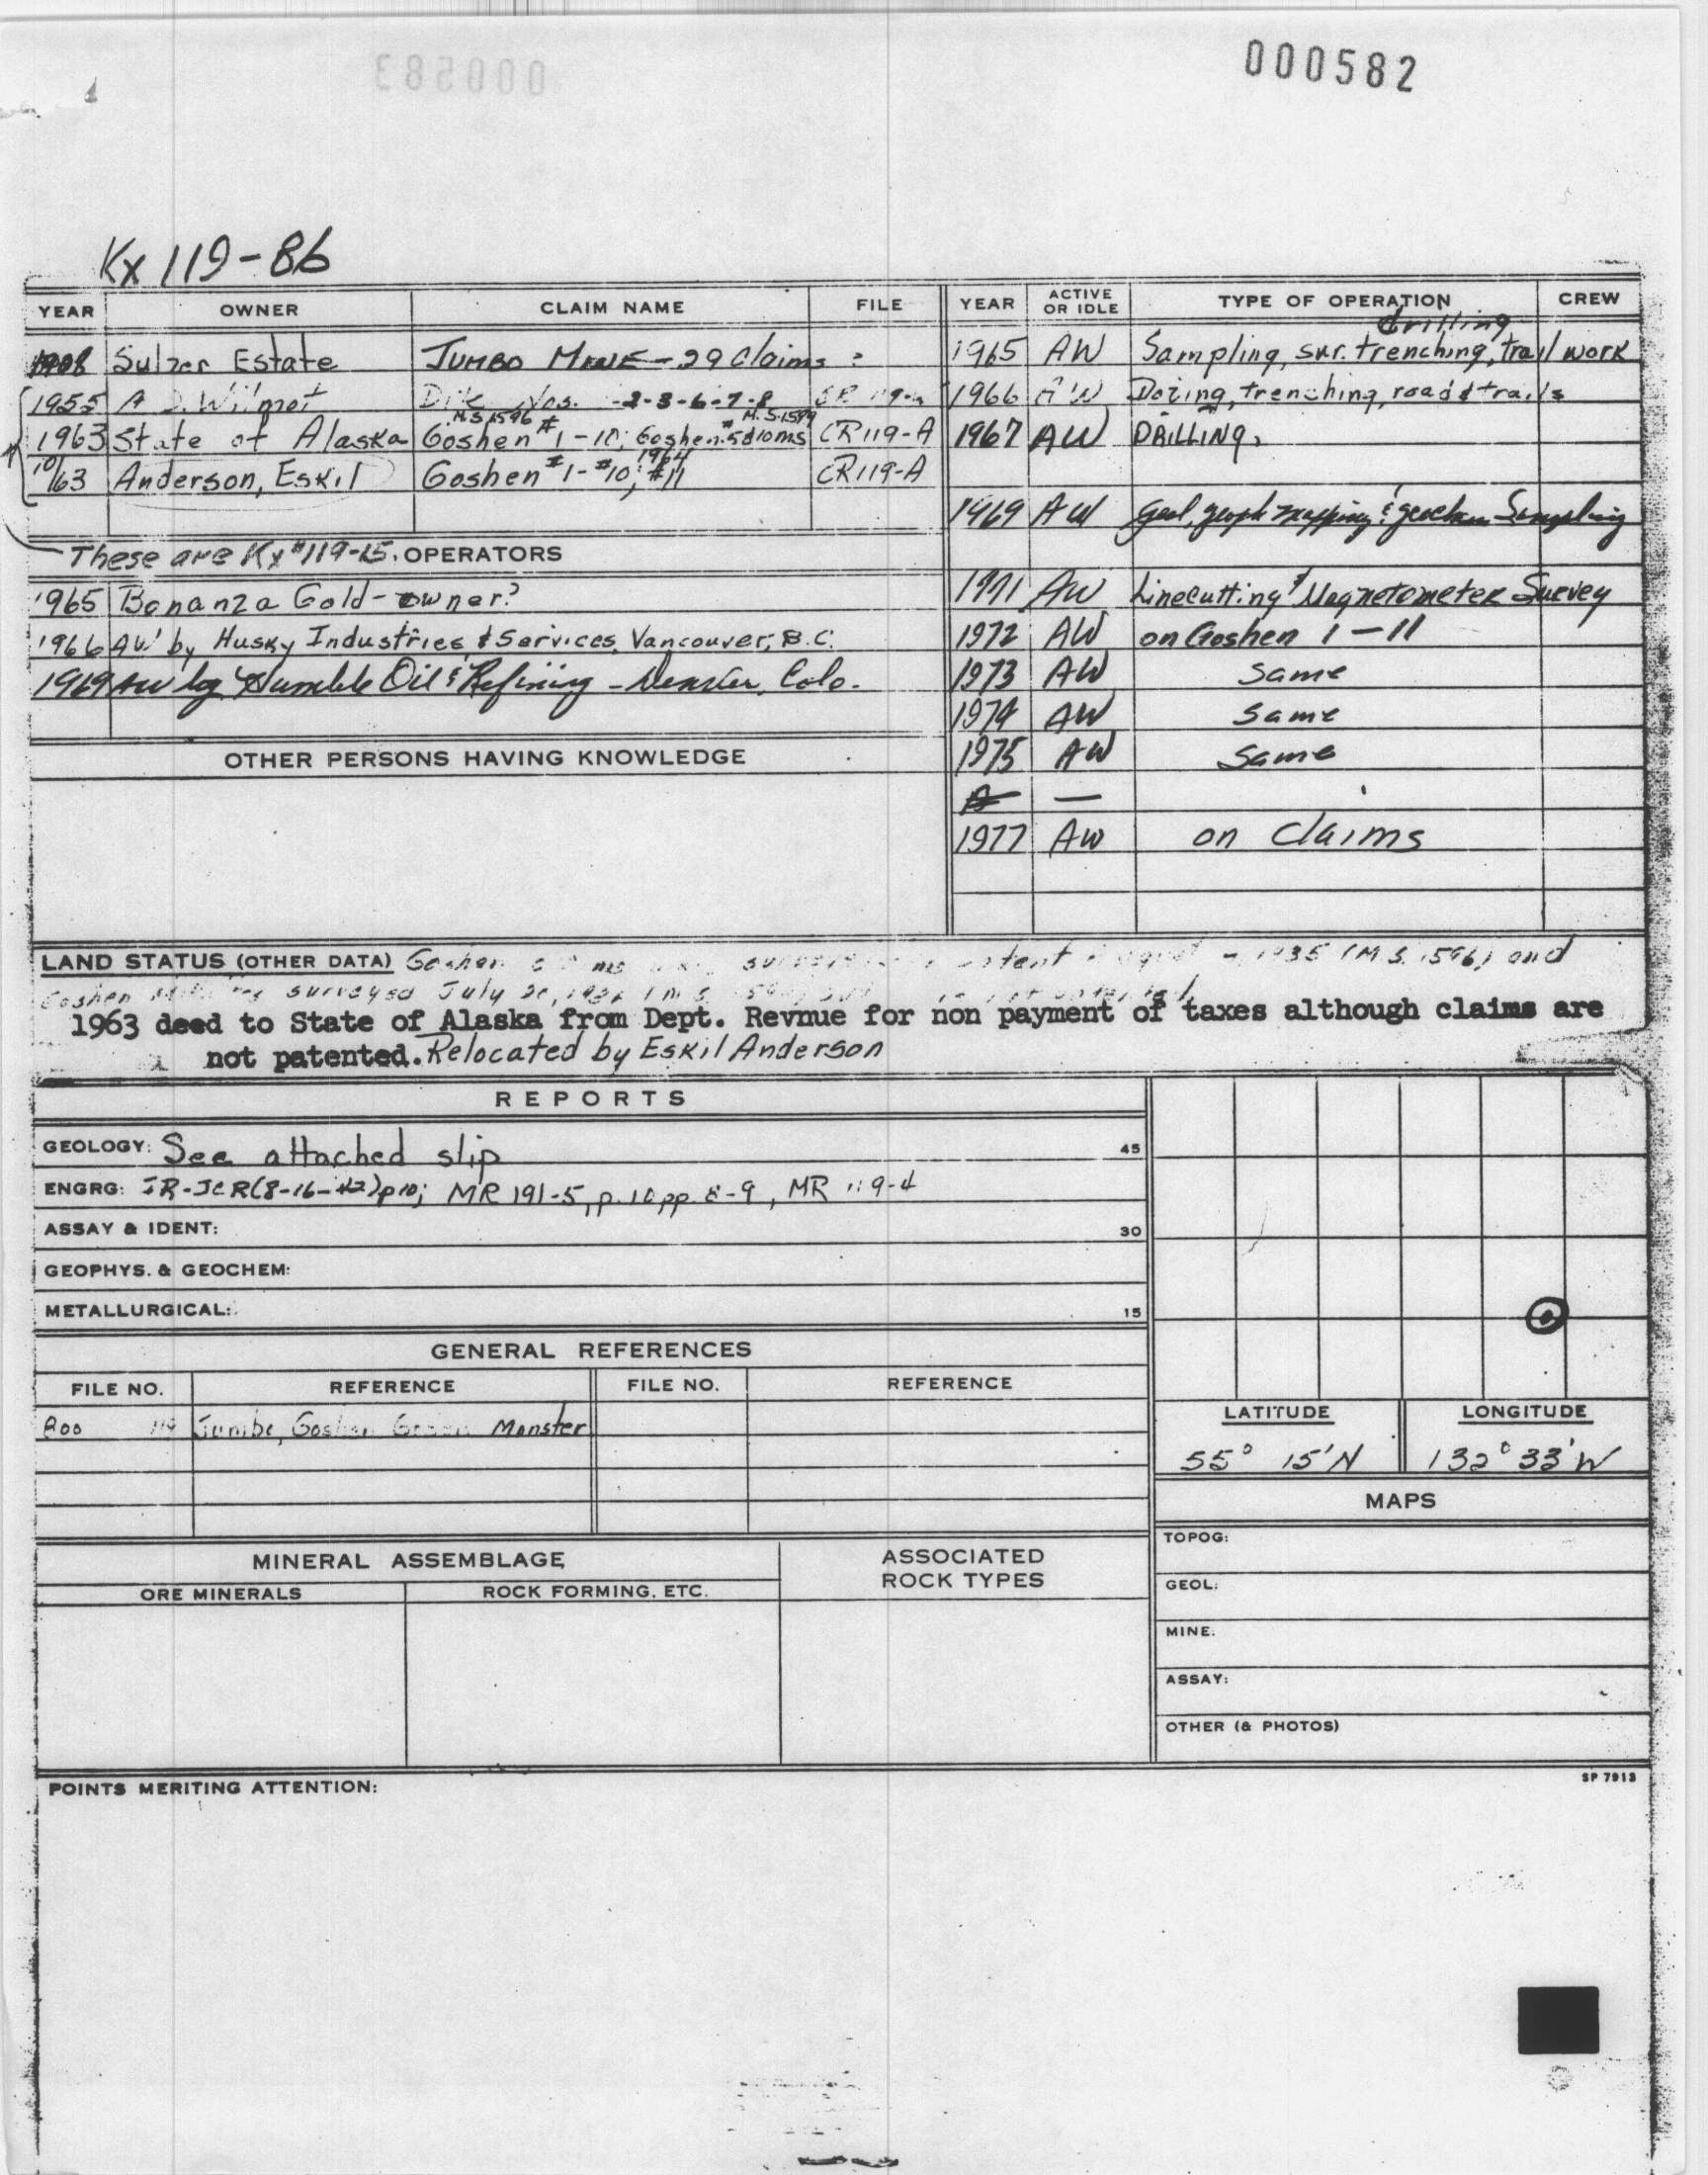 000582
Kx 119-86
YEAR OWNER CLAIM NAME FILE
1908 Sulzer Estate JUMBO MINE - 29 Claims
1955 A. D. Wilmot Nos. -2-3-6-7-8
M.S. 1596 M.S. 1599
1963 State of Alaska Goshen #1-10; Goshen CR 119-A
1964
10/63 Anderson, Eskil Goshen #1-#10; #11 CR 119-A
These are Kx #119-15.
OPERATORS
1965 Bonanza Gold - owner?
1966 AW by Husky Industries & Services, Vancouver, B.C.
1969 AW by Humble Oil & Refining - Denver, Colo.
OTHER PERSONS HAVING KNOWLEDGE
YEAR ACTIVE OR IDLE TYPE OF OPERATION CREW
drilling
1965 AW Sampling, sur. trenching, trail work
1966 AW Dozing, trenching, road & trails
1967 AW DRILLING,
1969 AW Geol, geoph mapping & geochem Sampling
1971 AW Linecutting & Magnetometer Survey
1972 AW on Goshen 1-11
1973 AW Same
1974 AW Same
1975 AW Same
—
1977 AW on Claims
LAND STATUS (OTHER DATA) Goshen 1935 (M.S. 1596) and
Goshen surveyed July
1963 deed to State of Alaska from Dept. Revnue for non payment of taxes although claims are
not patented. Relocated by Eskil Anderson
REPORTS
GEOLOGY: See attached slip 45
ENGRG: IR-JCR(8-16-42)p10; MR 191-5, p.10 pp. 8-9, MR 119-4
ASSAY & IDENT: 30
GEOPHYS. & GEOCHEM:
METALLURGICAL: 15
GENERAL REFERENCES
FILE NO. REFERENCE FILE NO. REFERENCE
800 119 Jumbo, Goshen Green Monster
LATITUDE LONGITUDE
55° 15'N 132° 33'W
MAPS
TOPOG:
GEOL:
MINE:
ASSAY:
OTHER (& PHOTOS)
MINERAL ASSEMBLAGE ASSOCIATED ROCK TYPES
ORE MINERALS ROCK FORMING, ETC.
POINTS MERITING ATTENTION:
SP 7913